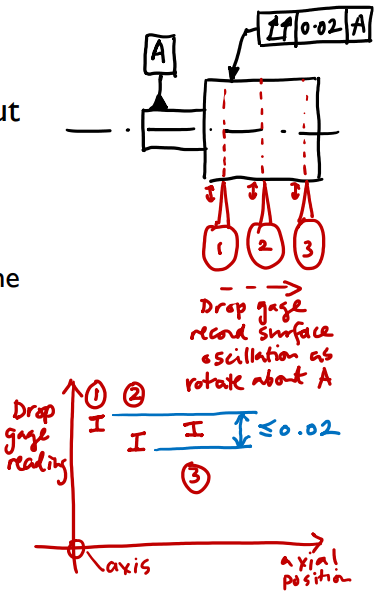 0.02 A
A
ut
1 2 3
ne
Drop gage
record surface
oscillation as
rotate about A
1 2
Drop
gage
reading
≤ 0.02
3
axis
axial
position